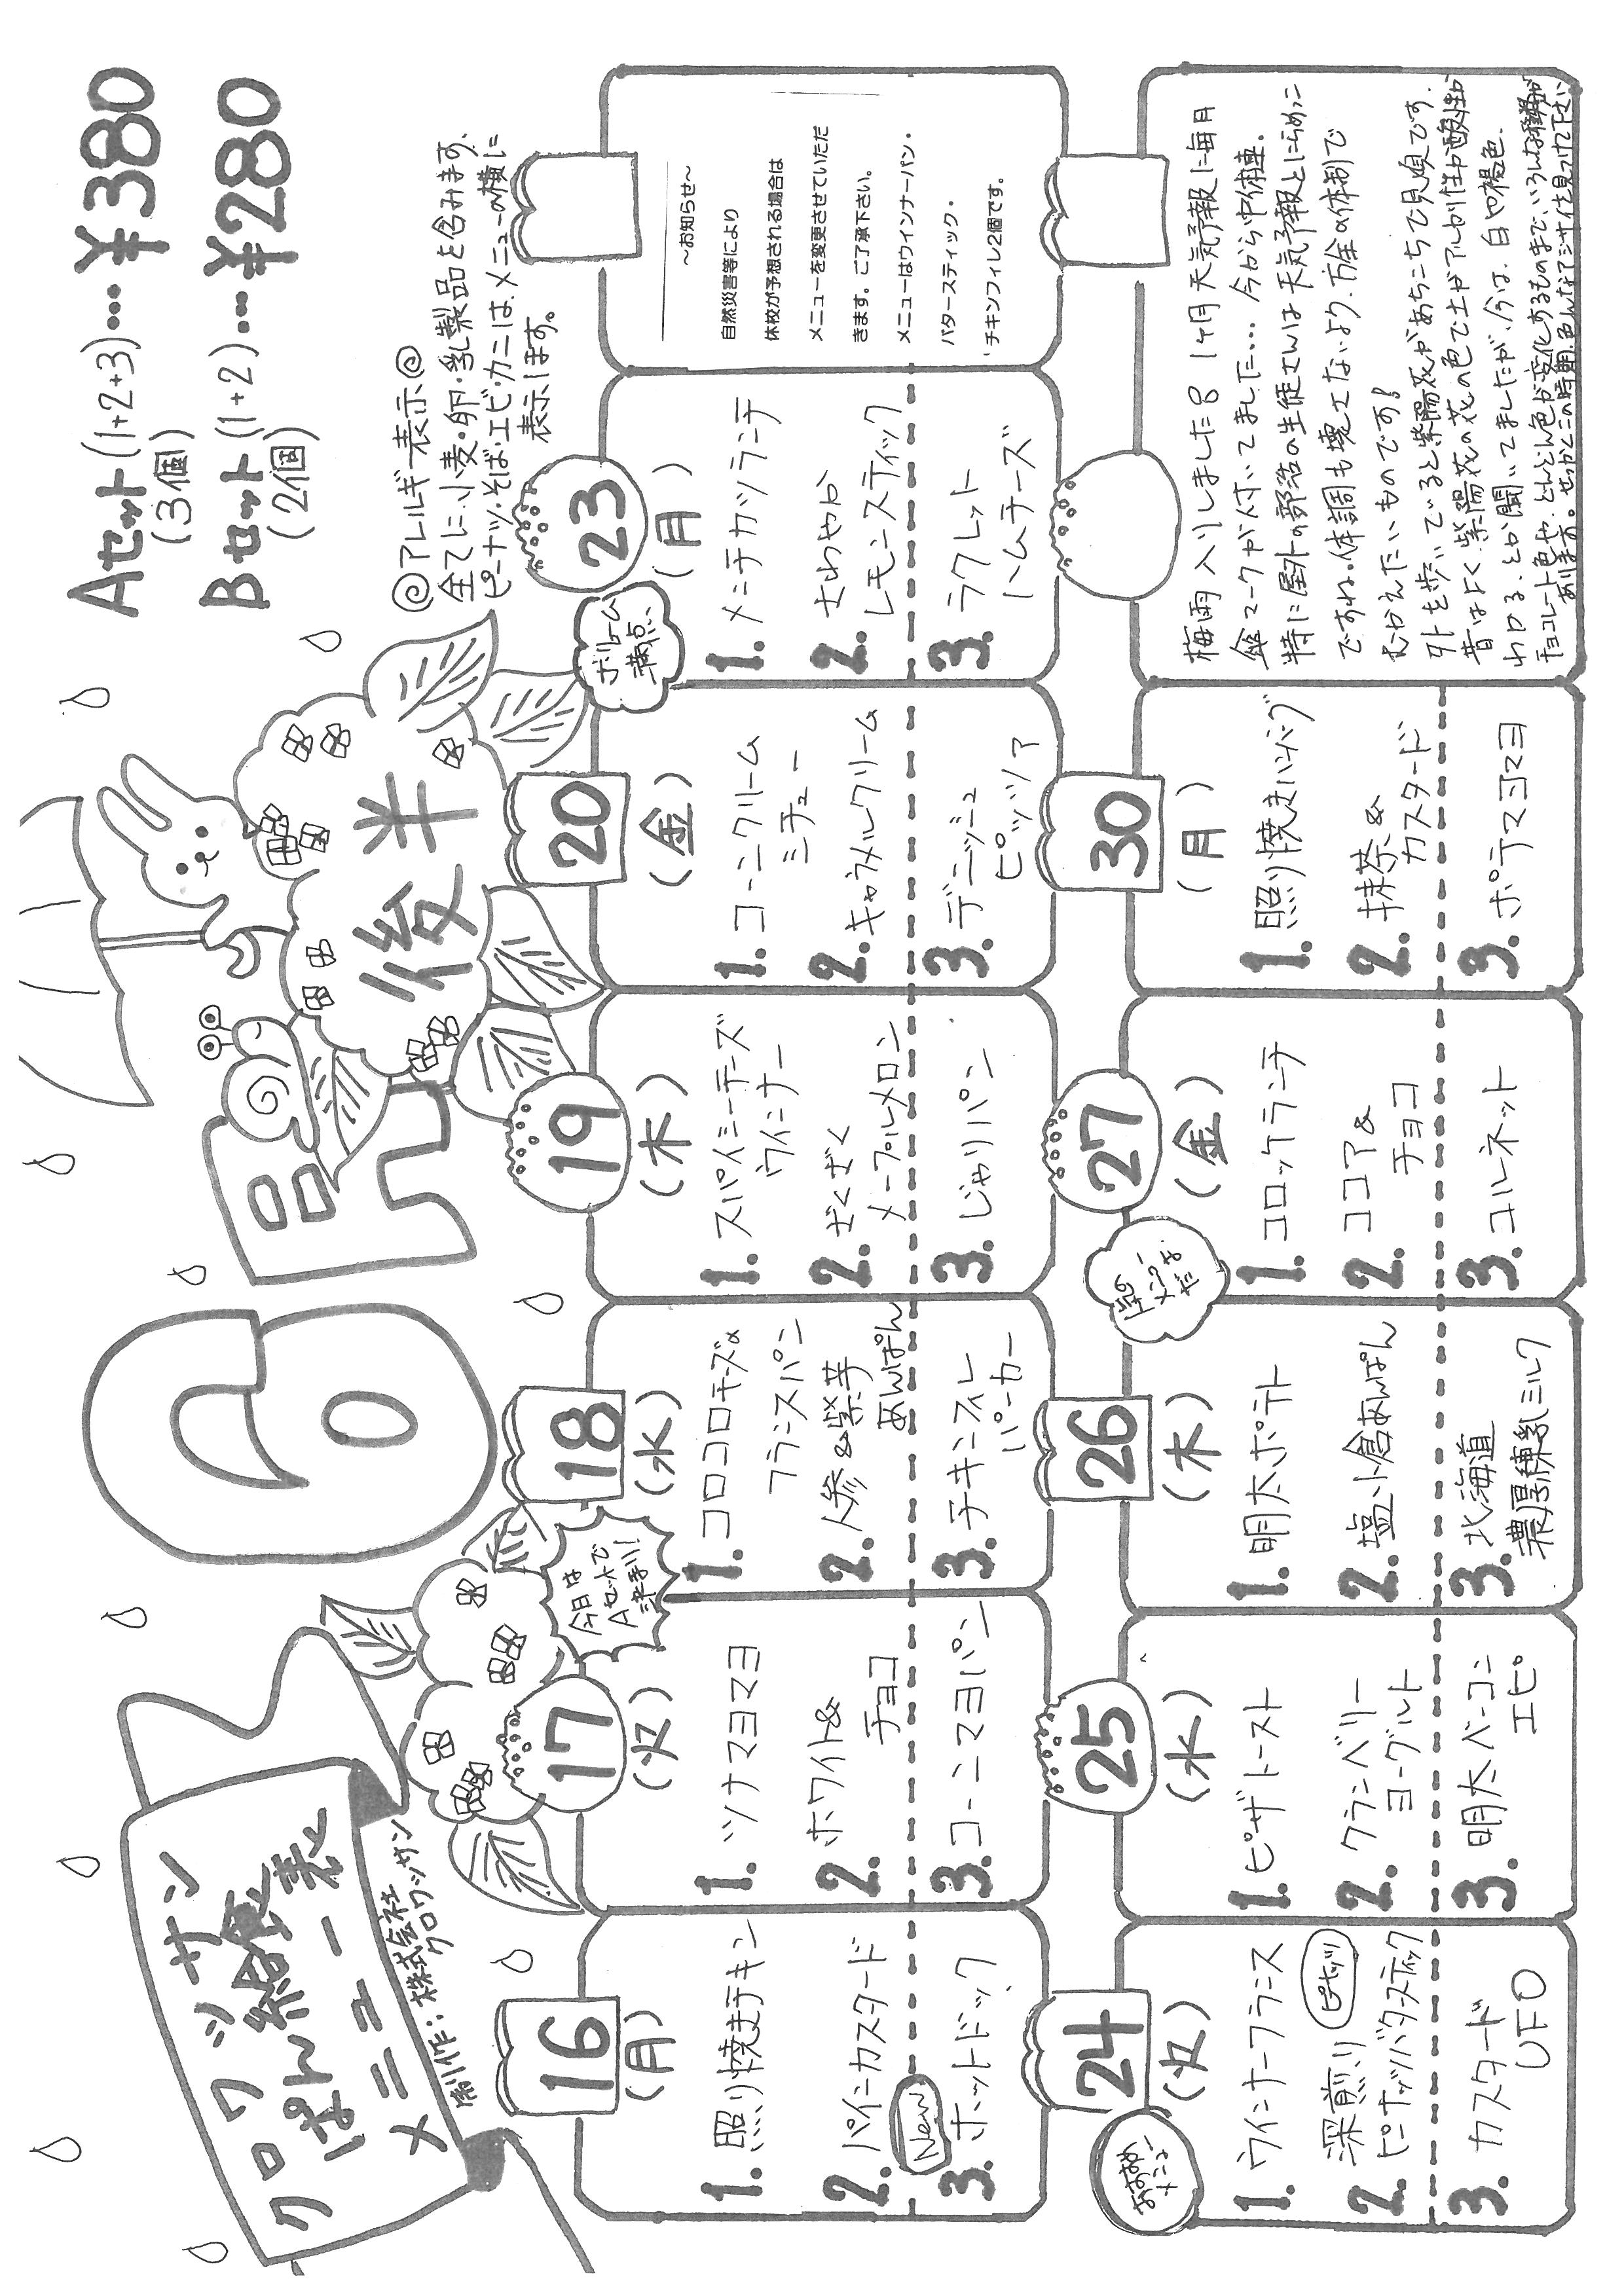 クロワッサン
ぱん給食
メニュー表
制作：株式会社
クロワッサン
6月
後半
Aセット(1+2+3)…¥380
(3個)
Bセット(1+2)…¥280
(2個)
◎アレルギー表示◎
全てに、小麦・卵・乳製品を含みます。
ピーナッツ・そば・エビ・カニは、メニューの横に
表示します。
16
(月)
1. 照り焼きチキン
2. パイン・カスタード
New
3. ホットドック
17
(火)
1. ツナマヨマヨ
2. ホワイト&
チョコ
3. コーンマヨパン
今日は
Aセットで
決まり!
18
(水)
1. コロコロチーズ&
フランスパン
2. 人参&紫芋
あんぱん
3. チキンフィレ
バーガー
19
(木)
1. スパイシーチーズ
ウインナー
2. ざくざく
メープルメロン
3. じゃりパン
20
(金)
1. コーンクリーム
シチュー
2. キャラメルクリーム
3. デニッシュ
ピッツァ
ボリューム
満点
23
(月)
1. メンチカツランチ
2. さわやか
レモンスティック
3. ラクレット
ハムチーズ
～お知らせ～
自然災害等により
休校が予想される場合は
メニューを変更させていただ
きます。ご了承下さい。
メニューはウインナーパン・
バタースティック・
チキンフィレ2個です。
おすすめ
メニュー
24
(火)
1. ウインナーフランス
2. 深煎り
ピーナッツバタースティック
ピーナッツ
3. カスタード
UFO
25
(水)
1. ピザトースト
2. クランベリー
ヨーグルト
3. 明太ベーコン
エピ
26
(木)
1. 明太ポテト
2. 塩小倉あんぱん
3. 北海道
濃厚練乳ミルク
メニュー
だ
27
(金)
1. コロッケランチ
2. ココア&
チョコ
3. コルネット
30
(月)
1. 照り焼きハンバーグ
2. 抹茶&
カスタード
3. ポテマヨマヨ
梅雨入りしました 1ヶ月天気予報に毎日
傘マークが付いてました… 今から中体連。
特に屋外の部活の生徒さんは天気予報とにらめっこ
ですね。体調も壊さないよう、万全の体制で
むかえたいものです!
外を歩いていると紫陽花があちこちで見頃です。
昔はよく、紫陽花の花の色で土がアルカリ性か酸性か
わかる、とか聞いてましたが、今は、白や褐色、
チョコレート色や、どんどん色が変化するものまで、いろんな種類が
あります。せっかくこの時期、色んなアジサイ見つけて下さい